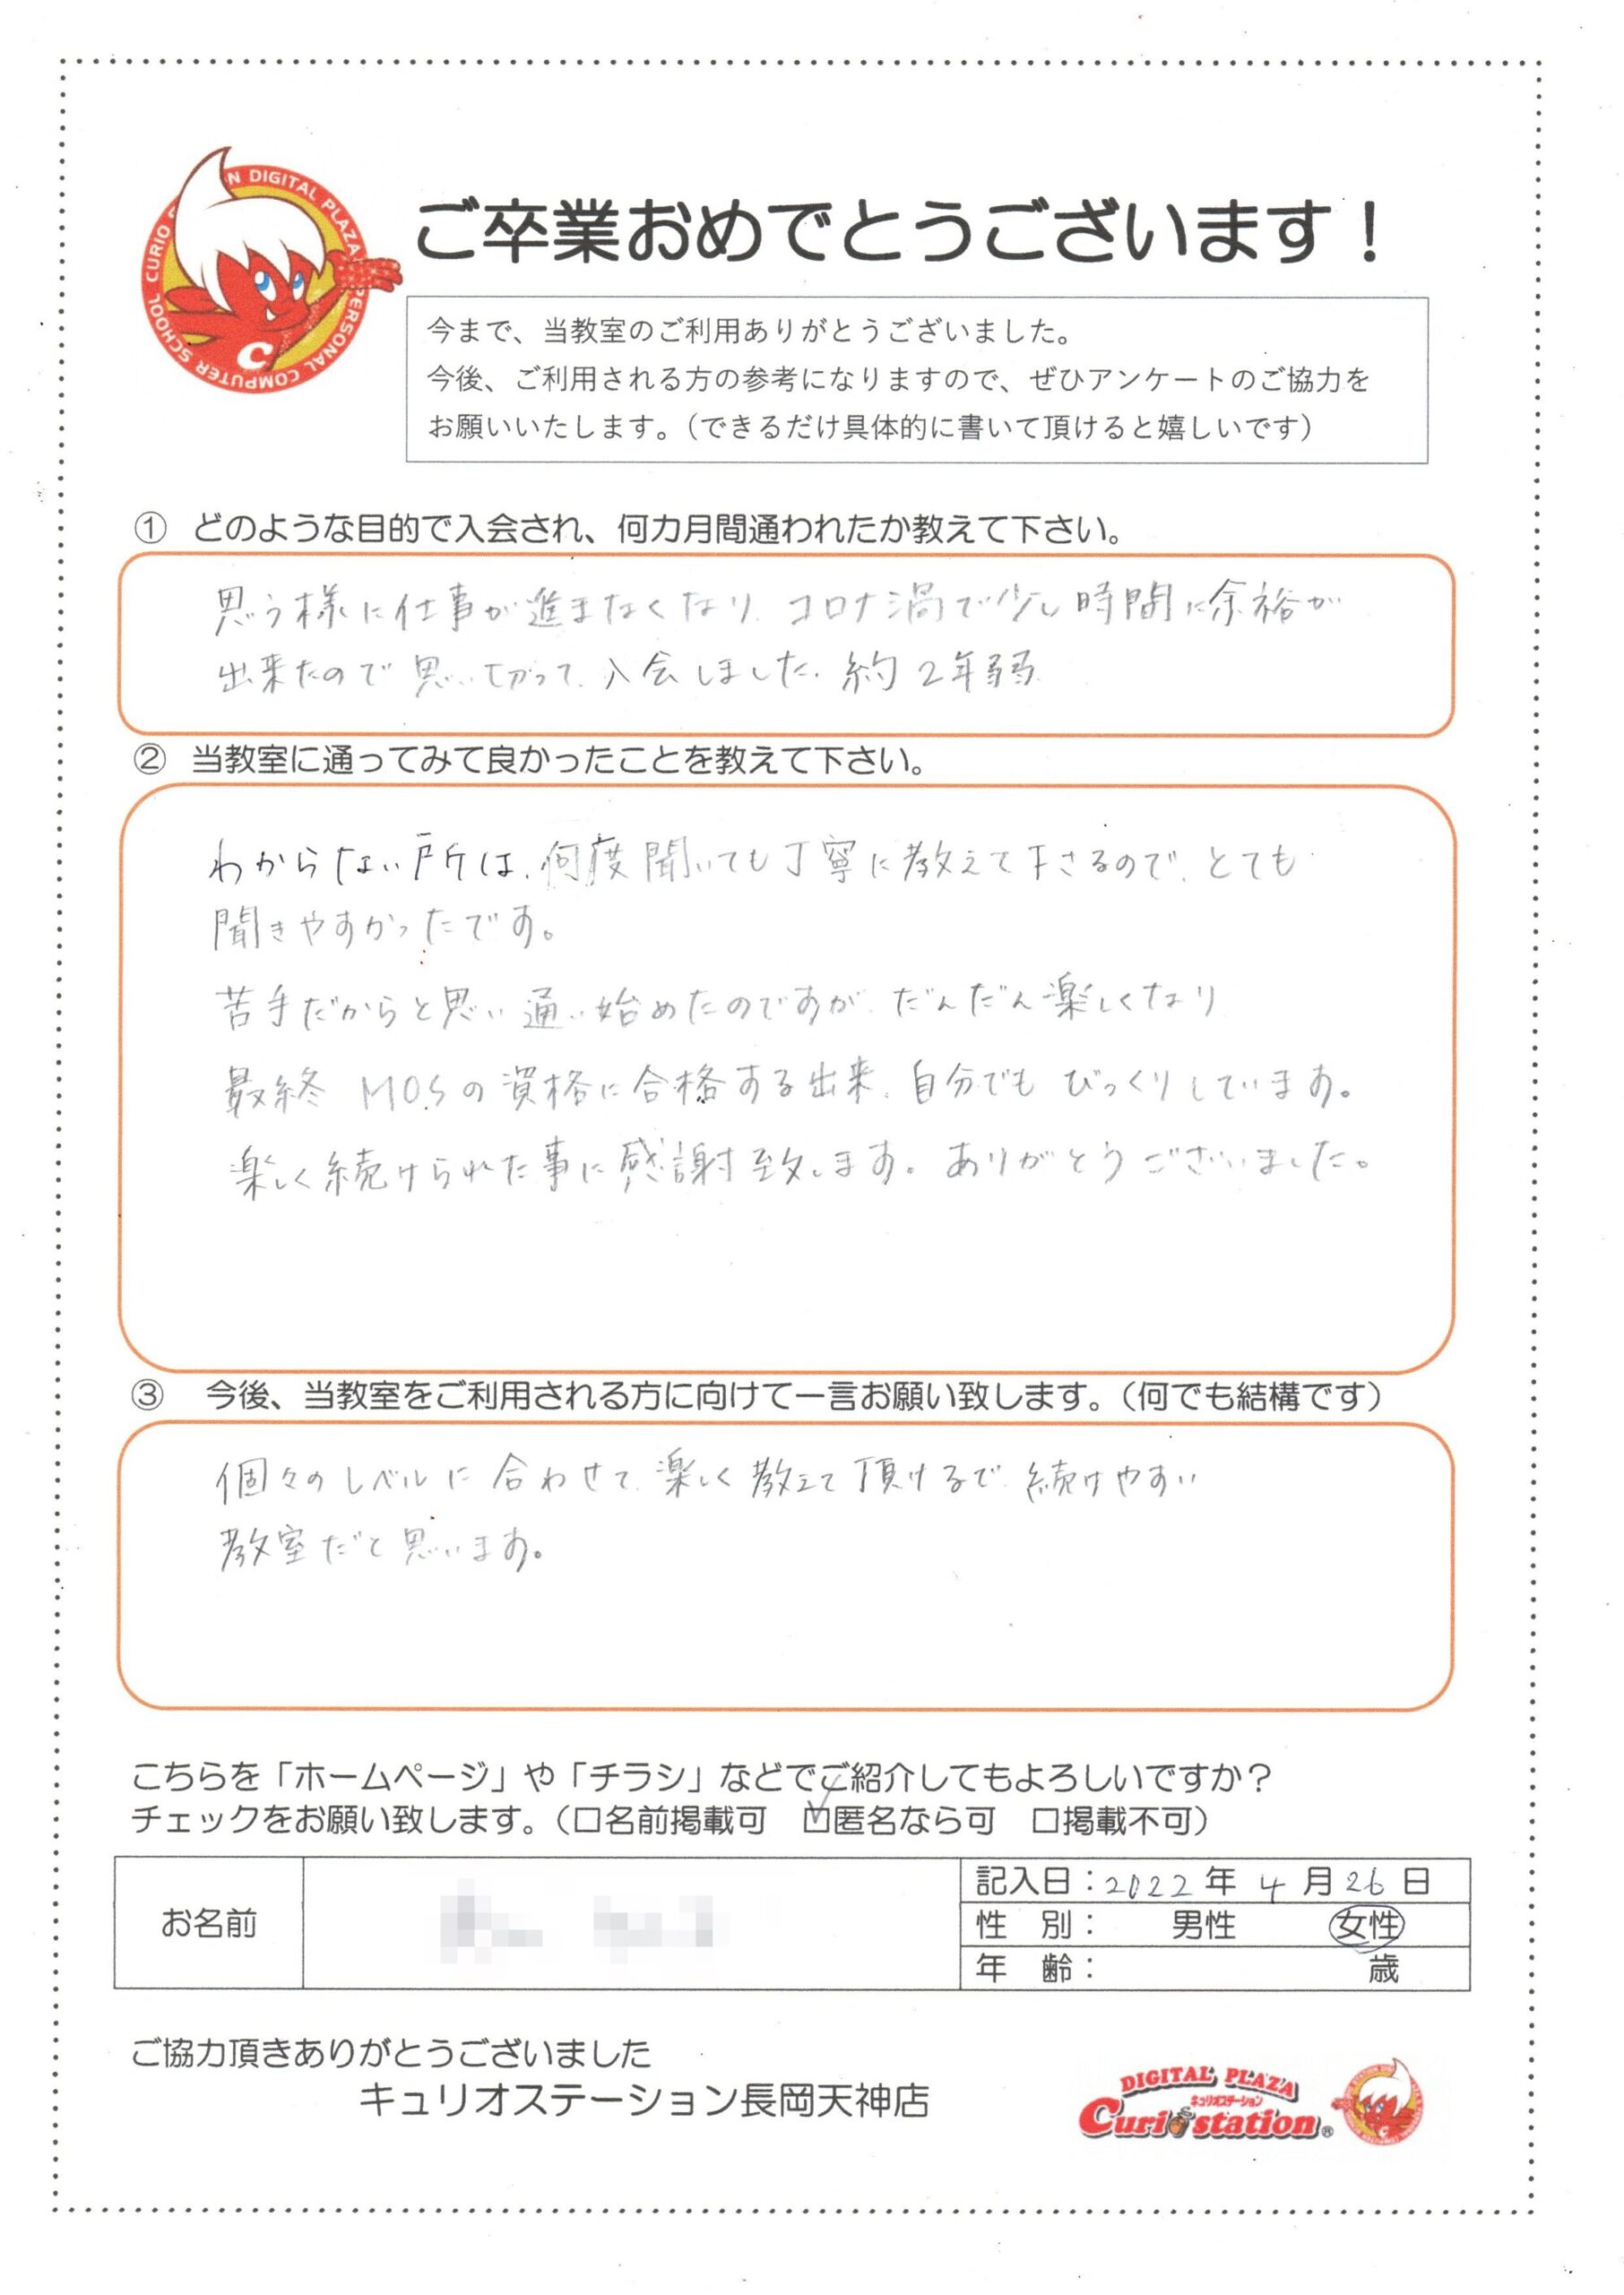 CURIO STATION DIGITAL PLAZA PERSONAL COMPUTER SCHOOL
C
ご卒業おめでとうございます！
今まで、当教室のご利用ありがとうございました。
今後、ご利用される方の参考になりますので、ぜひアンケートのご協力を
お願いいたします。（できるだけ具体的に書いて頂けると嬉しいです）
① どのような目的で入会され、何カ月間通われたか教えて下さい。
思う様に仕事が進まなくなり、コロナ渦で少し時間に余裕が
出来たので思い切って、入会しました。約2年弱
② 当教室に通ってみて良かったことを教えて下さい。
わからない所は、何度聞いても丁寧に教えて下さるので、とても
聞きやすかったです。
苦手だからと思い通い始めたのですが、だんだん楽しくなり
最終 MOSの資格に合格する出来、自分でも びっくりしています。
楽しく続けられた事に感謝致します。ありがとうございました。
③ 今後、当教室をご利用される方に向けて一言お願い致します。（何でも結構です）
個々のレベルに合わせて、楽しく教えて頂けるで、続けやすい
教室だと思います。
こちらを「ホームページ」や「チラシ」などでご紹介してもよろしいですか？
チェックをお願い致します。（□名前掲載可 ☑匿名なら可 □掲載不可）
お名前
記入日：2022年 4月26日
性 別： 男性 女性
年 齢： 歳
ご協力頂きありがとうございました
キュリオステーション長岡天神店
DIGITAL PLAZA
キュリオステーション
Curio station®